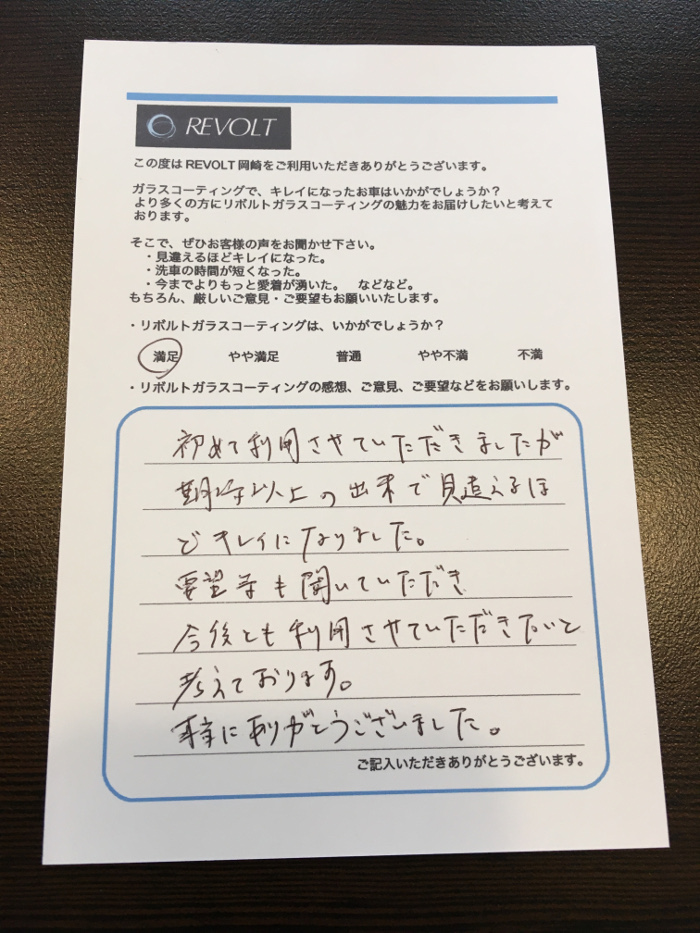 REVOLT
この度は REVOLT 岡崎をご利用いただきありがとうございます。
ガラスコーティングで、キレイになったお車はいかがでしょうか？
より多くの方にリボルトガラスコーティングの魅力をお届けしたいと考えて
おります。
そこで、ぜひお客様の声をお聞かせ下さい。
・見違えるほどキレイになった。
・洗車の時間が短くなった。
・今までよりもっと愛着が湧いた。 などなど。
もちろん、厳しいご意見・ご要望もお願いいたします。
・リボルトガラスコーティングは、いかがでしょうか？
満足 やや満足 普通 やや不満 不満
・リボルトガラスコーティングの感想、ご意見、ご要望などをお願いします。
初めて利用させていただきましたが
期待以上の出来で見違えるほ
どキレイになりました。
要望等も聞いていただき
今後とも利用させていただきたいと
考えております。
にありがとうございました。
ご記入いただきありがとうございます。